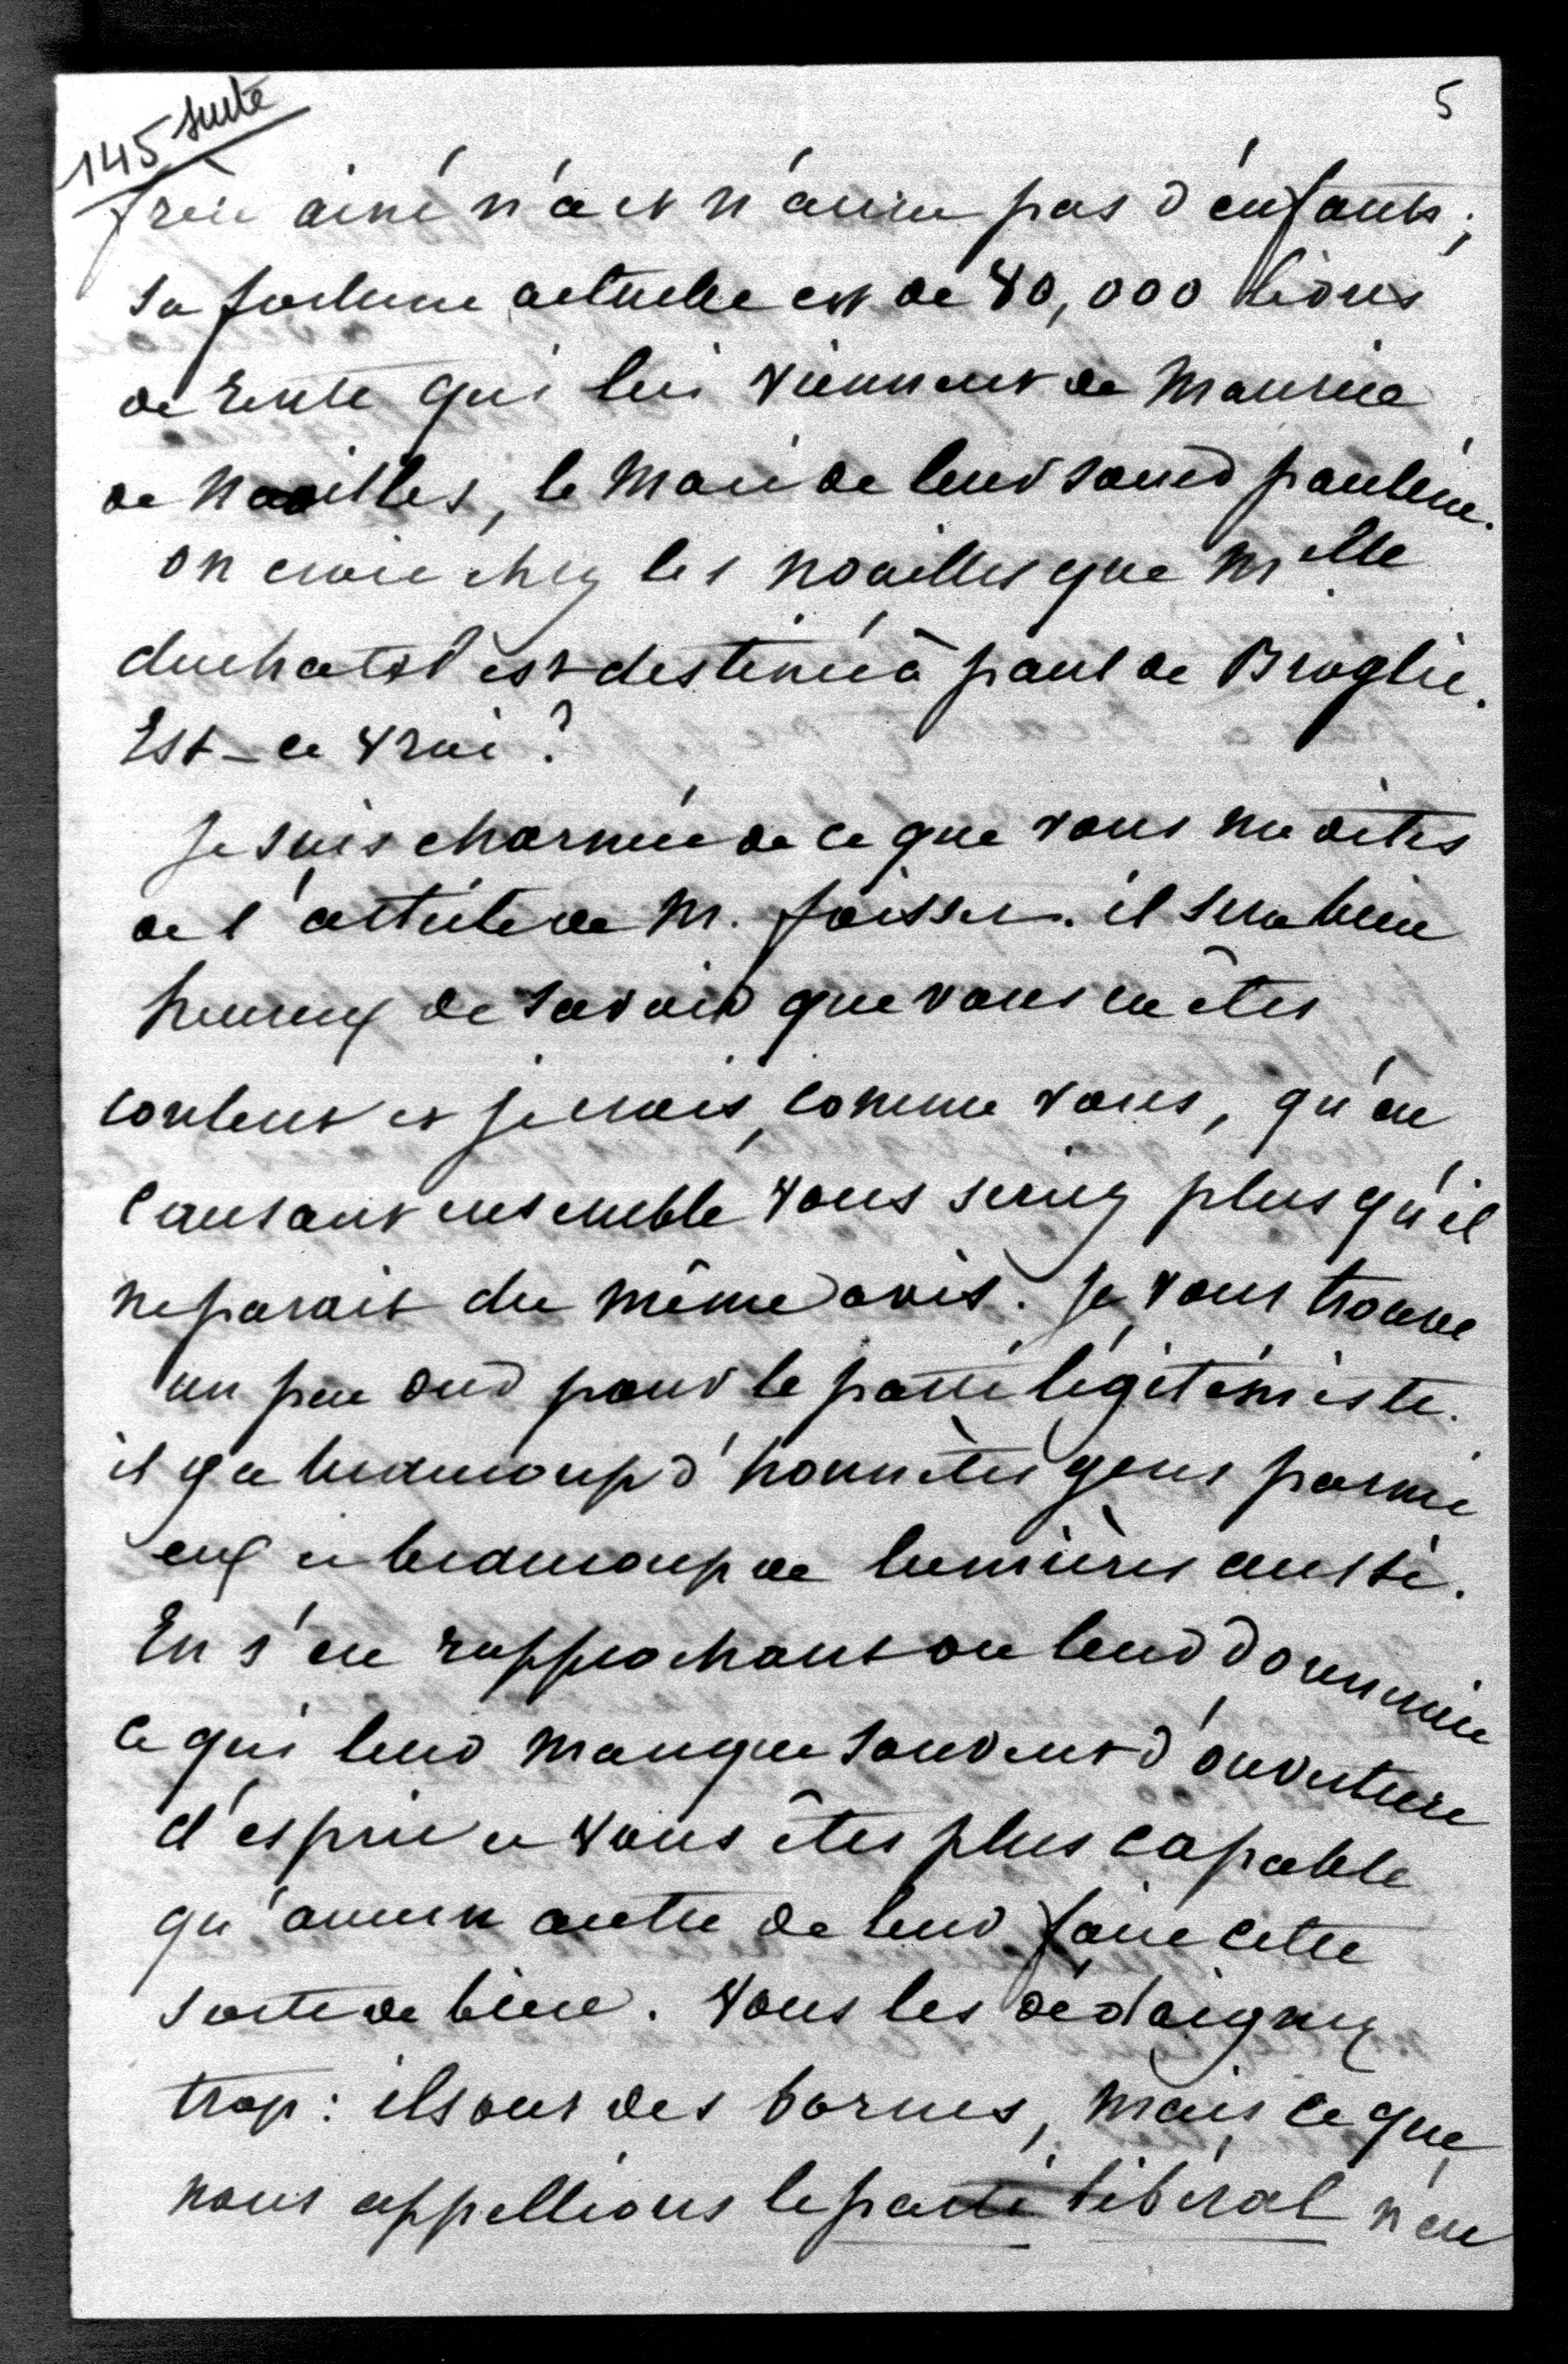 145 suite
5
frère ainé n'a et n'aura pas d'enfants ;
sa fortune actuelle est de 40,000 livres
de rente qui lui viennent de Maurice
de Noailles, le mari de leur sœur pauline.
on croit chez les noailles que Mlle
duchatel est destinée à paul de Broglie.
Est-ce vrai ?
Je suis charmée de ce que vous me dites
de l'article de M. foisset. il sera bien
heureux de savoir que vous en êtes
content et je crois, comme vous, qu'en
causant ensemble vous seriez plus qu'il
ne parait du même avis. Je vous trouve
un peu dur pour le parti légitimiste.
il y a beaucoup d'honnêtes gens parmi
eux et beaucoup de lumières aussi.
En s'en rapprochant on leur donnerait
ce qui leur manque souvent d'ouverture
d'esprit et vous êtes plus capable
qu'aucun autre de leur faire cette
sorte de bien. Vous les dédaignez
trop : ils ont des bornes, mais ce que
nous appellions le parti libéral n'en